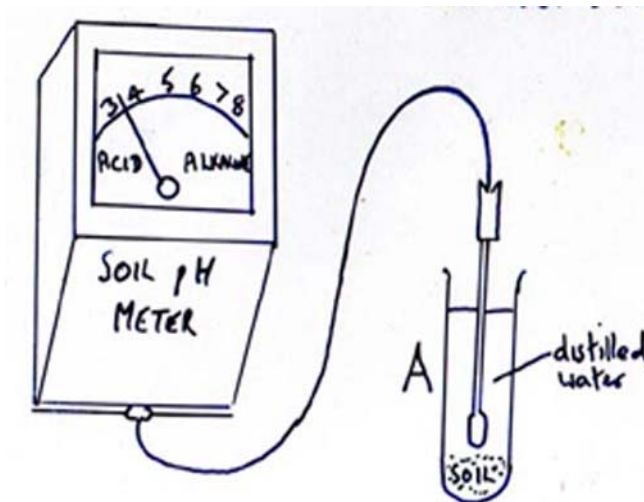 3 4 5 6 7 8
ACID ALKALINE
SOIL pH
METER
A
distilled
water
SOIL